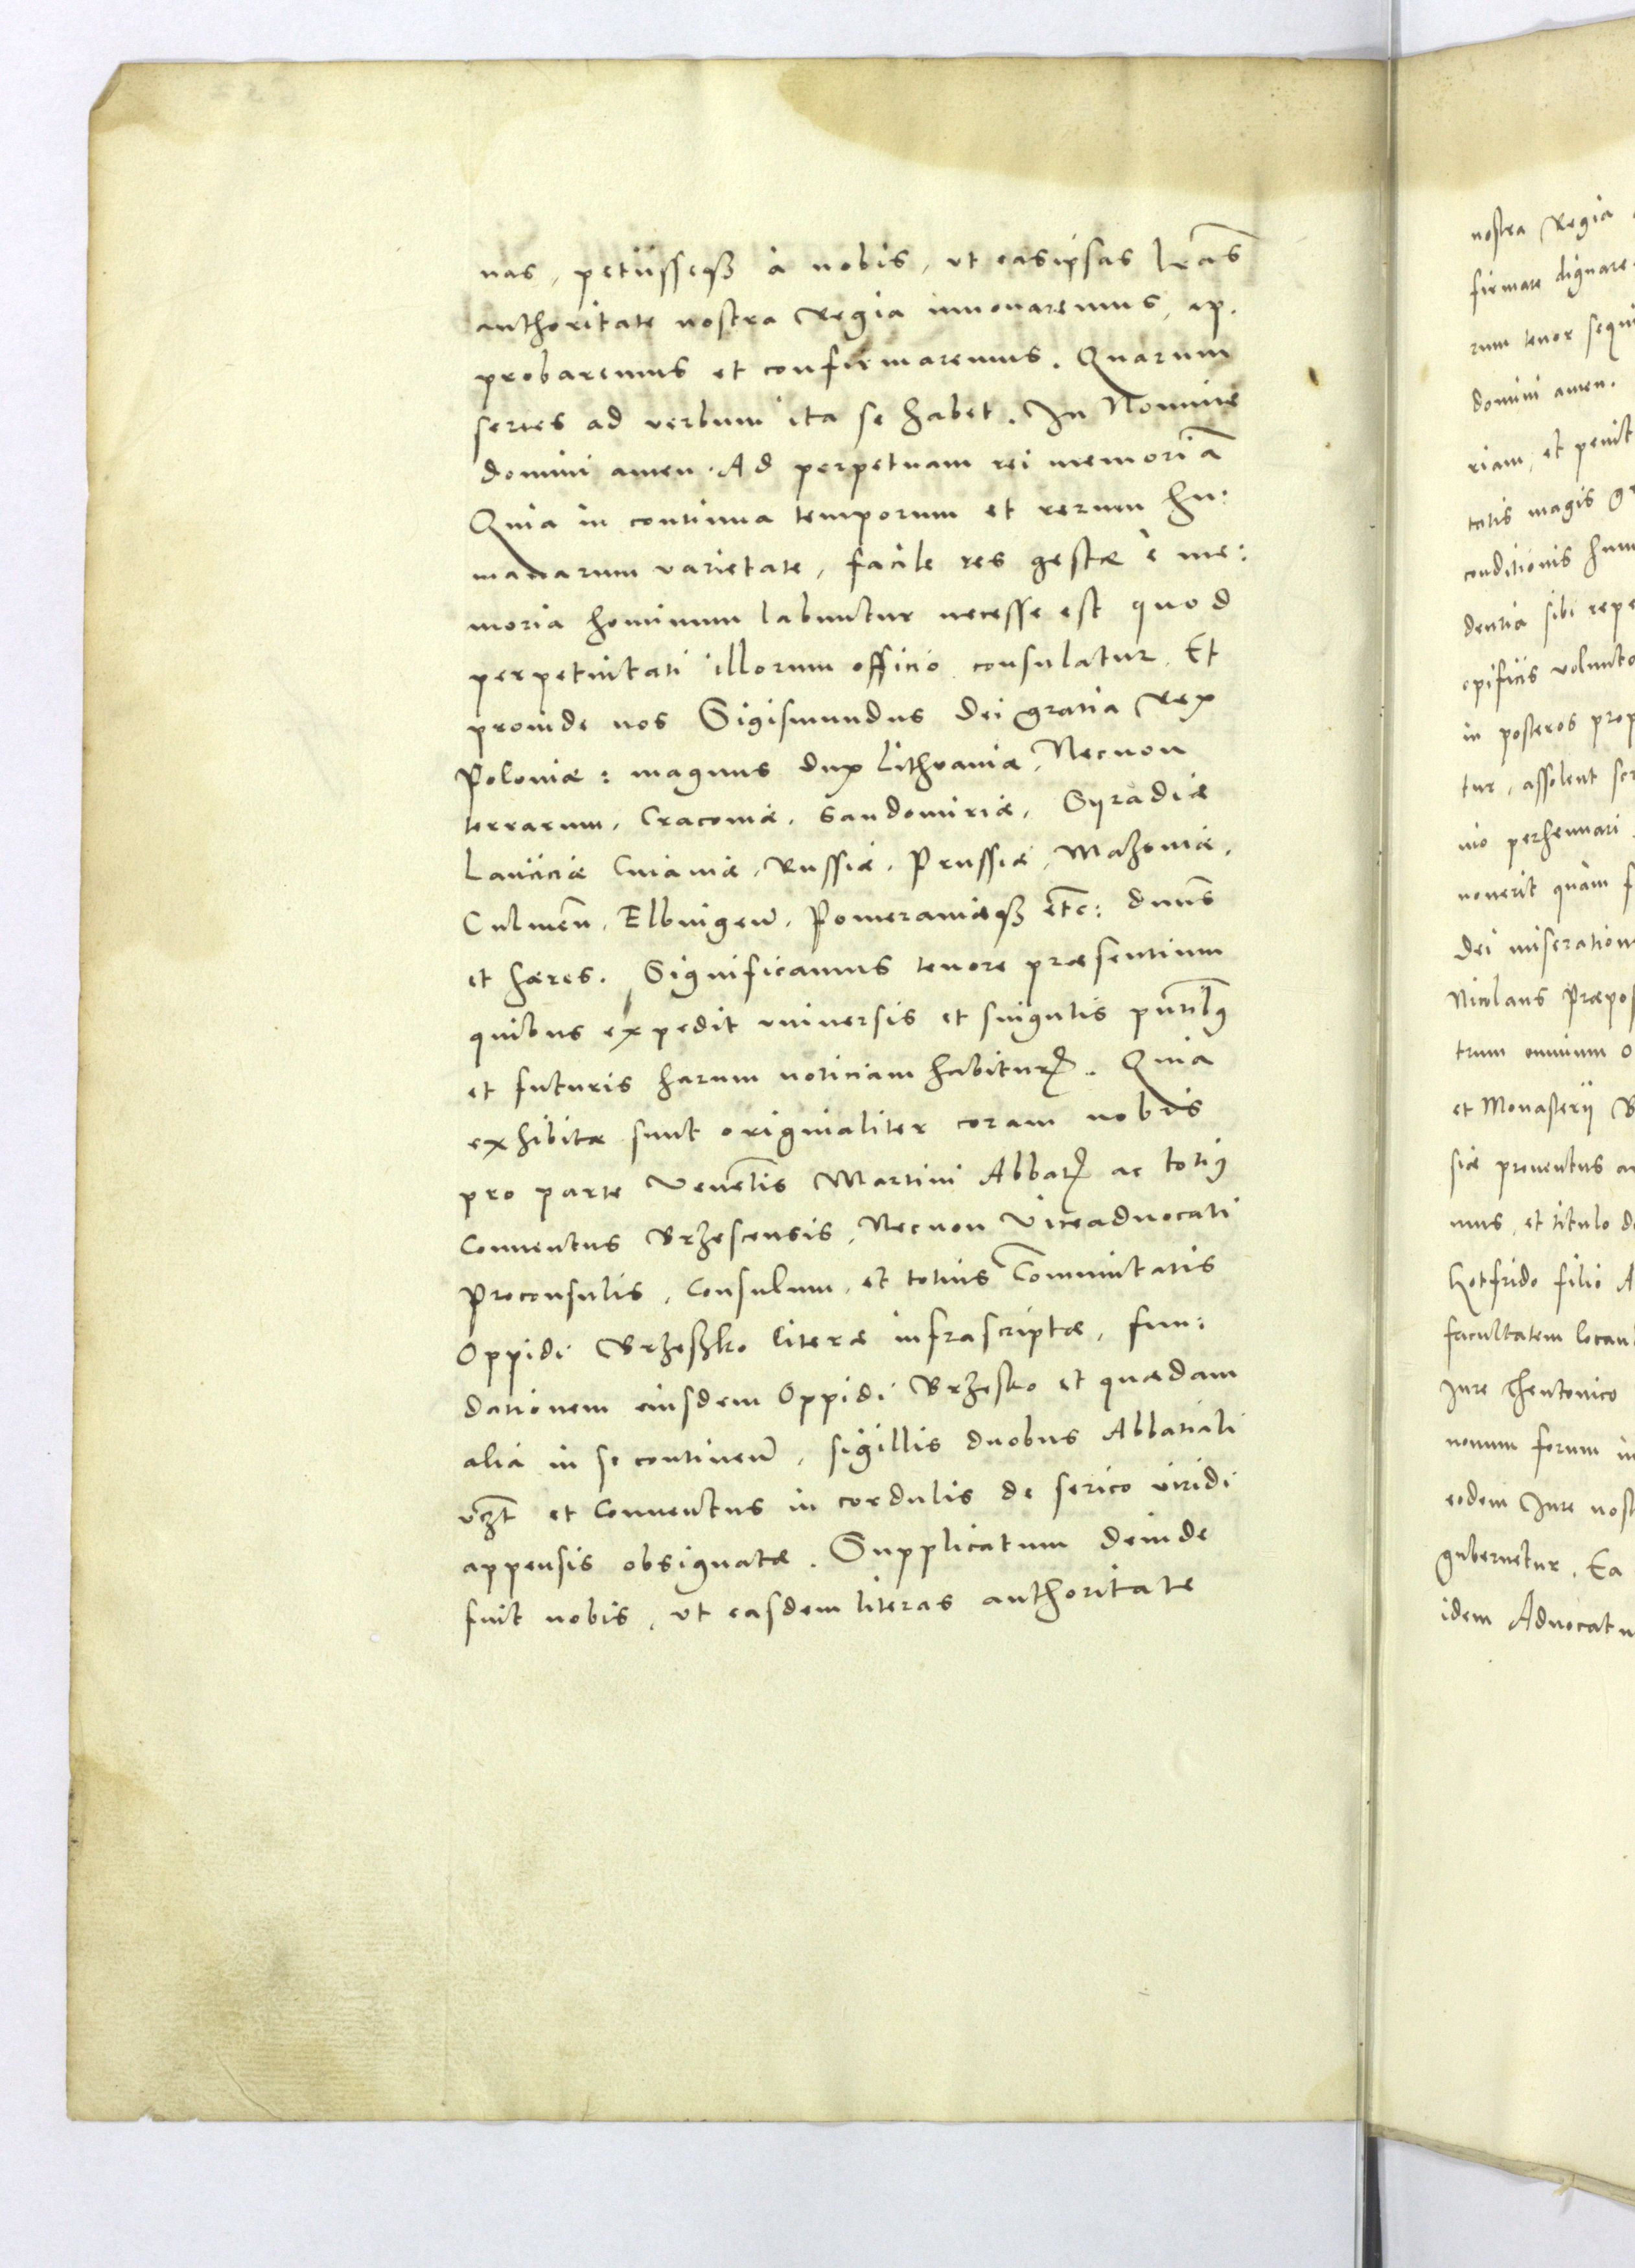 nas, petiisseqȝ à nobis, ut easipsas lras
authoritate nostra Regia innouaremus, ap.
probaremus et confirmaremus. Quarum
series ad verbum ita se habet. In Nomine
domini amen. Ad perpetuam rei memoriã
Quia in continua temporum et rerum hu:
manarum varietate, facile res gestæ è me:
moria hominum labuntur necesse est quod
perpetuitati illorum officio consulatur. Et
proinde nos Sigismundus dei gratia Rex
Poloniæ: magnus dux Lithvaniæ, Necnon
terrarum, Cracouiæ, Sandomiriæ, Syradiæ
Lanciciæ Cuiauiæ, Russiæ, Prussiæ, Mazouiæ,
Culmen̄, Elbingen̄, Pomeraniæqȝ etc: dnus
et hæres. Significamus tenore præsentium
quibus expedit uniuersis et singulis pntibꝰ
et futuris harum noticiam habiturꝭ. Quia
exhibitæ sunt originaliter coram nobis
pro parte Venelis Martini Abbatꝭ ac totiꝰ
Conuentus Brzescensis, Necnon Viceaduocati
Proconsulis, Consulum, et totius Communitatis
Oppidi Brzeszko literæ infrascriptæ, fun:
dationem eiusdem Oppidi Brzesko et quædam
alia in se continen̄, sigillis duobus Abbatiali
vȝt et Conuentus in cordulis de serico viridi
appensis obsignatæ. Supplicatum deinde
fuit nobis, ut easdem literas authoritate
nostra Regia
firmare dignare
rum tenor sequi
domini amen.
riam, et penit
tatis magis gr
conditionis hum
dentia sibi repe
opificis volunta
in posteros prop
tur, assolent scr
nio perhennari
nouerit quàm f
dei miseration
Nicolaus Præpos
trum omnium o
et Monasterii B
siæ prouentus a
mus, et titulo d
Gotfrido filio A
facultatem locan
Jure Theutonico
nouum forum in
eodem Jure nost
gubernetur. Ea
idem Aduocatu